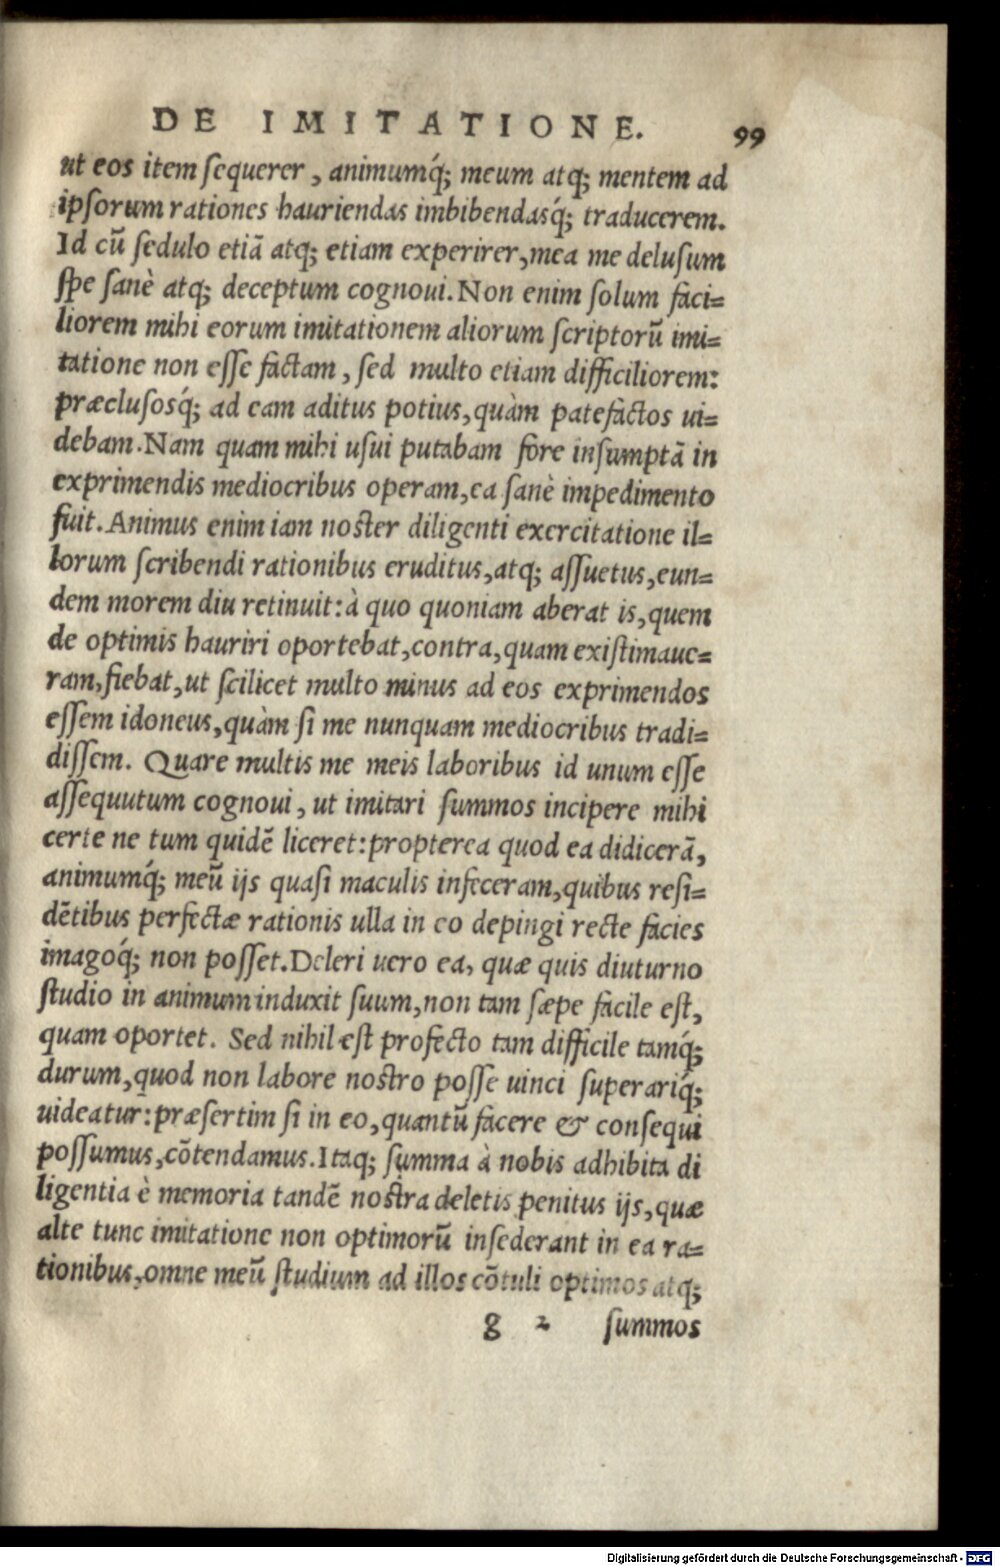 DE IMITATIONE. 99
ut eos item sequerer, animumq́; meum atq; mentem ad
ipsorum rationes hauriendas imbibendasq́; traducerem.
Id cũ sedulo etiã atq; etiam experirer, mea me delusum
spe sanè atq; deceptum cognoui. Non enim solum faci=
liorem mihi eorum imitationem aliorum scriptorũ imi=
tatione non esse factam, sed multo etiam difficiliorem:
præclusosq́; ad eam aditus potius, quàm patefactos ui=
debam. Nam quam mihi usui putabam fore insumptã in
exprimendis mediocribus operam, ea sanè impedimento
fuit. Animus enim iam noster diligenti exercitatione il=
lorum scribendi rationibus eruditus, atq; assuetus, eun=
dem morem diu retinuit: à quo quoniam aberat is, quem
de optimis hauriri oportebat, contra, quam existimaue=
ram, fiebat, ut scilicet multo minus ad eos exprimendos
essem idoneus, quàm si me nunquam mediocribus tradi=
dissem. Quare multis me meis laboribus id unum esse
assequutum cognoui, ut imitari summos incipere mihi
certe ne tum quidẽ liceret: propterea quod ea didicerã,
animumq́; meũ ijs quasi maculis infeceram, quibus resi=
dẽtibus perfectæ rationis ulla in eo depingi recte facies
imagoq́; non posset. Deleri uero ea, quæ quis diuturno
studio in animum induxit suum, non tam sæpe facile est,
quam oportet. Sed nihil est profecto tam difficile tamq́;
durum, quod non labore nostro posse uinci superariq́;
uideatur: præsertim si in eo, quantũ facere & consequi
possumus, cõtendamus. Itaq; summa à nobis adhibita di
ligentia è memoria tandẽ nostra deletis penitus ijs, quæ
alte tunc imitatione non optimorũ insederant in ea ra=
tionibus, omne meũ studium ad illos cõtuli optimos atq;
g 2 summos
Digitalisierung gefördert durch die Deutsche Forschungsgemeinschaft - DFG